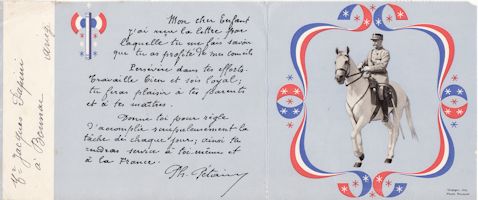 Mon cher Enfant
j'ai reçu la lettre par
laquelle tu me fais savoir
que tu as profité de mes conseils
Persévère dans tes efforts.
Travaille bien et sois loyal ;
tu feras plaisir à tes parents
et à tes maîtres.
Donne toi pour règle
d'accomplir scrupuleusement la
tâche de chaque jour ; ainsi tu
rendras service à toi-même et
à la France.
Ph. Pétain
Jacques
à